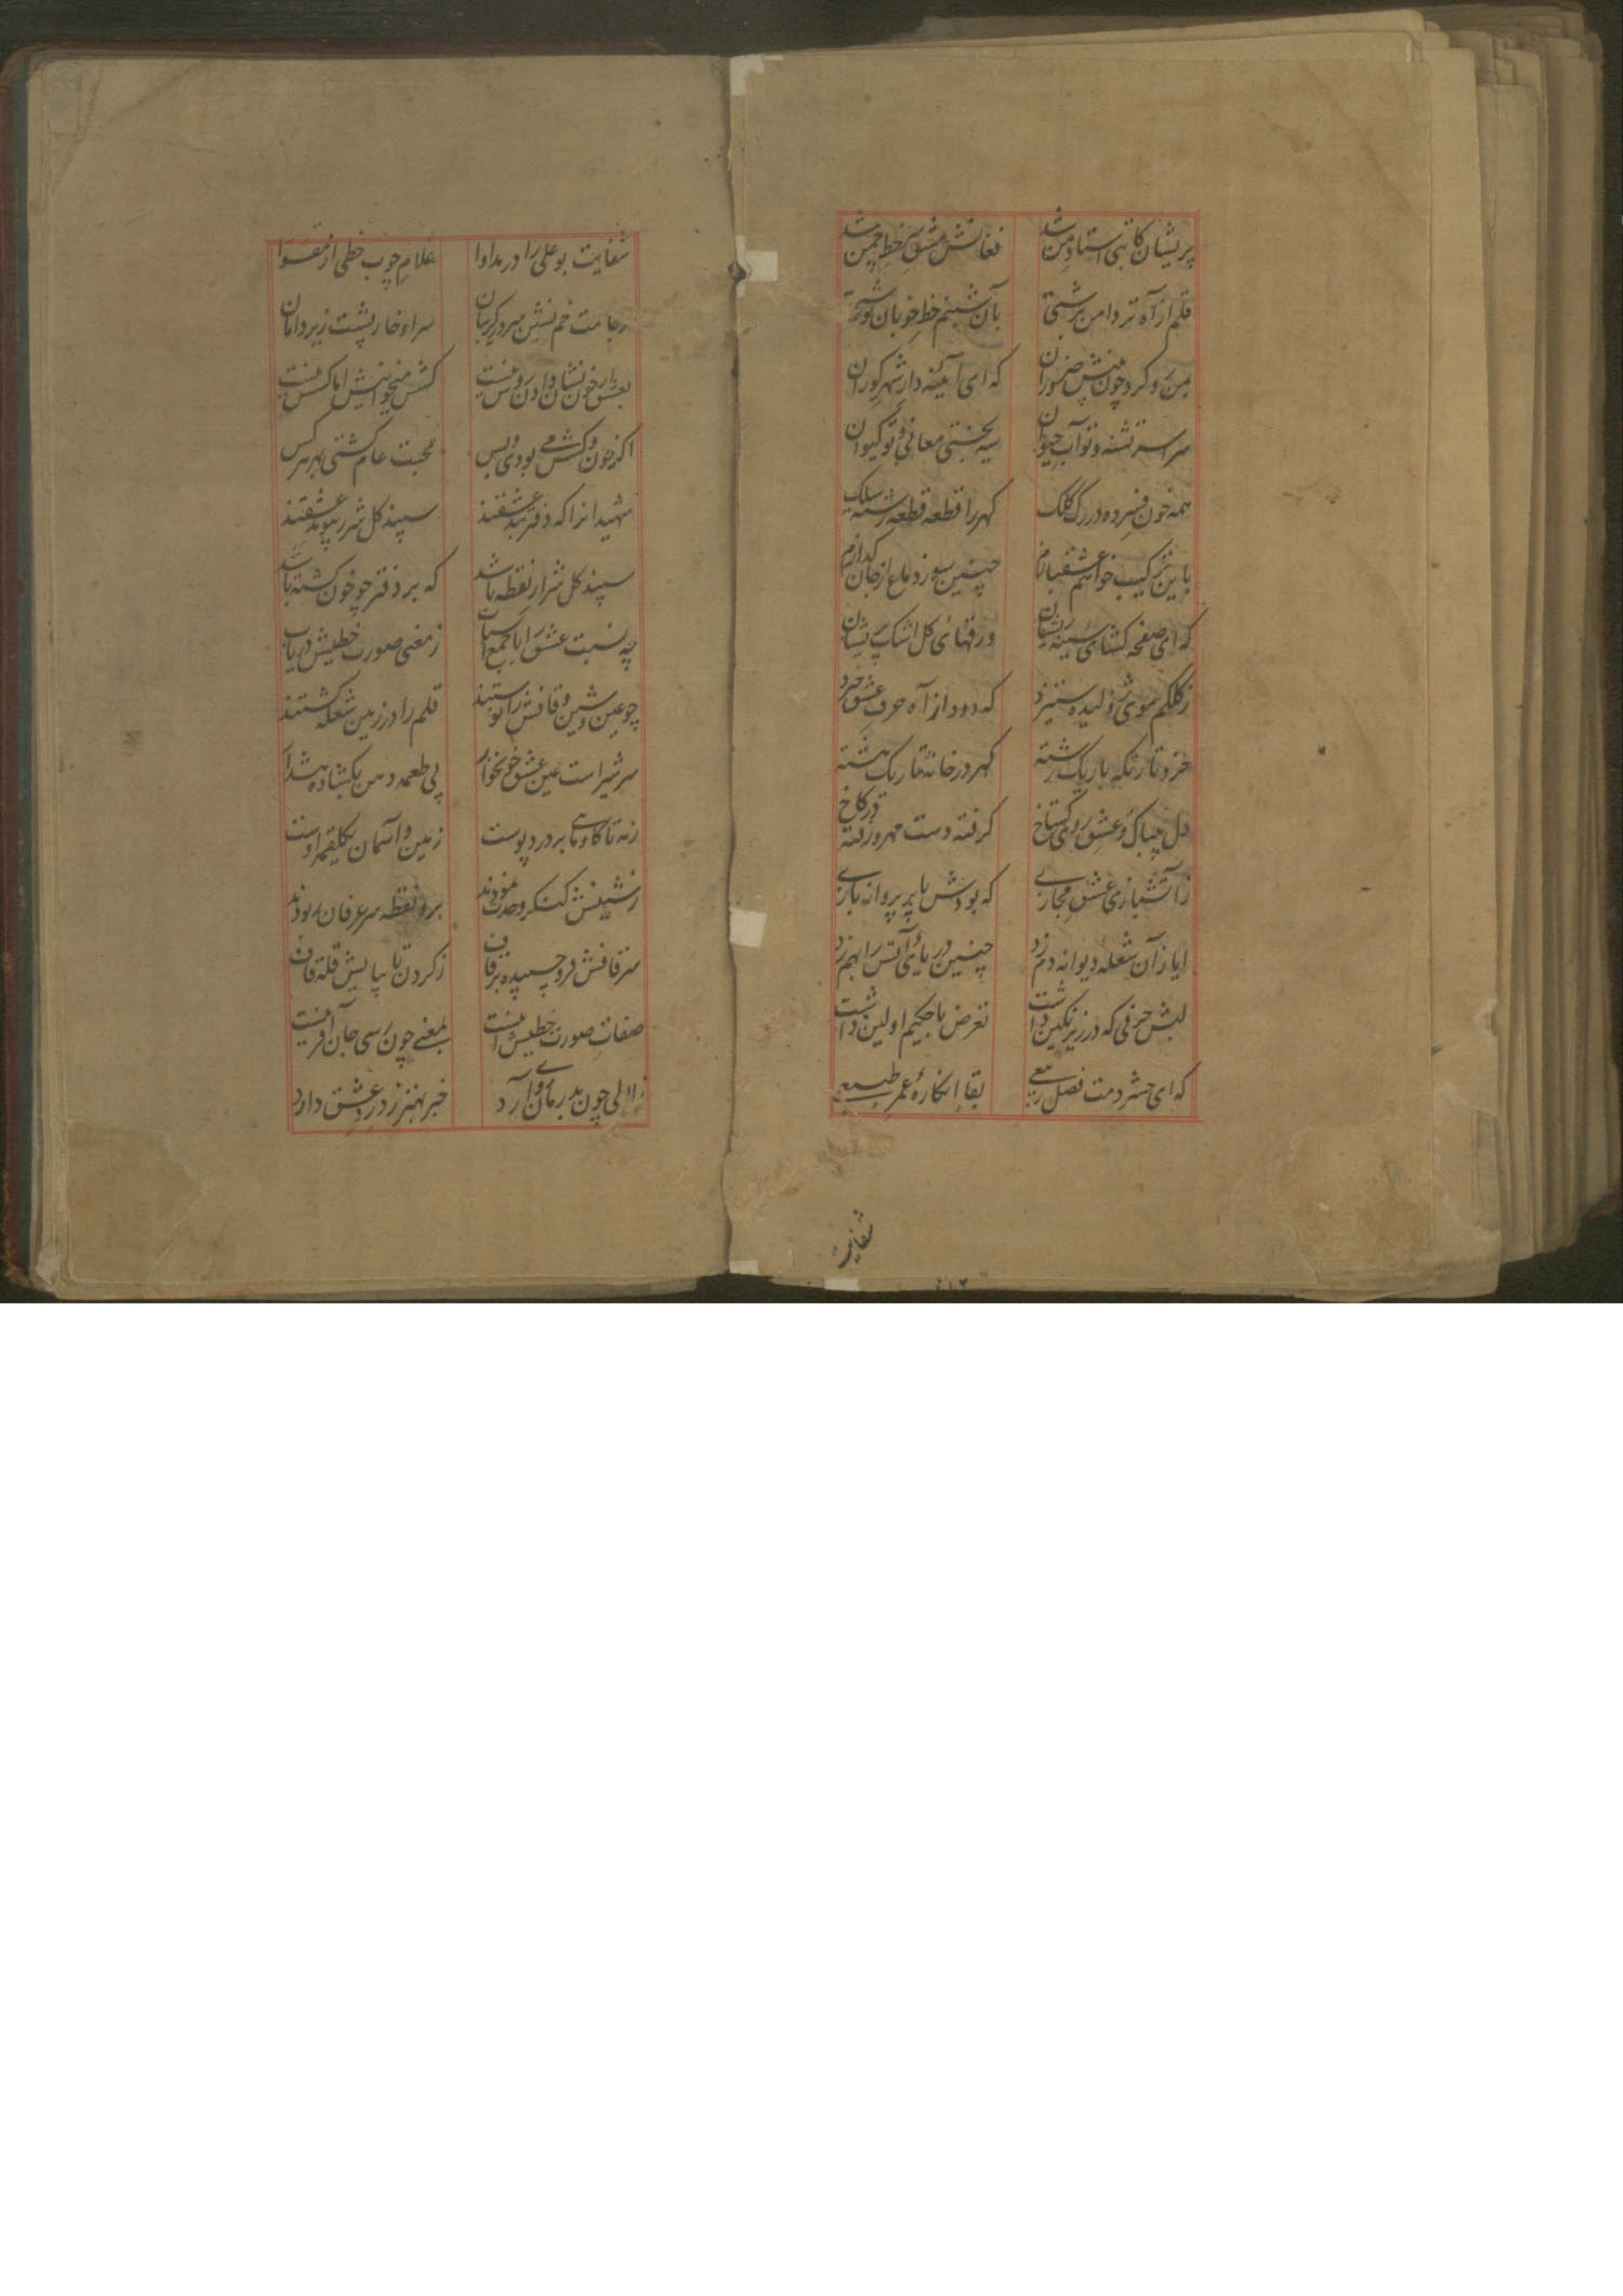 پریشان کاتبی استاد من شد فغانش مشق سر خط چمن شد
قلم از آه تر دامن سرشتی بآن شبنم خط خوبان نوشتی
بمن رو کرد چون بینش ضروران که ای آئینه دار شهر کوران
سراسر تشنه و تو آب حیوان سیه بختی معانی و تو کیوان
همه خون فسرده در رک کلک کهر را قطعه قطعه رشته سلک
باین ترکیب خواهم چنین بسوز دماغ از جان کدازم
که ای صفحه کشای سینه ریشان ورقهای کل اشک پریشان
ز کلکم موی ژولیده ستیزد که دود از آه حرف عشق خیزد
خرد تار نکه باریک رشته کهر در خانه تاریک هشته
دل بیباک و عشق روی کستاخ کرفته دست مهر و رفته در کاخ
ز آتشبازی عشق مجازی که بودش با پر پروانه بازی
ایاز آن شعله دیوانه دم زد چنین دریای آتش را بهم زد
لبش حرفی که در زیر نکین داشت تعرض با حکیم اولین داشت
که ای حشر دمت فصل ربیعی بقا انکاره عمر طبیعی
شفایت
شفایت بوعلی را در مداوا غلام چوب خطی از مقوا
خم نشین سر در کریبان سر او خار پشت زیر دامان
بعشق ار خون نشان دادن روس نیست کشش میخوانیش اما کسش نیست
اکر خون و کشش می بودی و بس محبت عام کشتی بهر هر کس
شهیدانرا که دفتر بند عشقند سپند کل شرر پیوند عشقند
سپند کل شرار نقطه باشد که بر دفتر چو خون کشته باشد
چه نسبت عشق را با جمع اسباب ز معنی صورت خطیش دریاب
چو عین و شین و قافش را نوشتند قلم را در زمین شعله کشتند
سر شیر است عین عشق خونخوار پی طعمه دهن بکشاده هشدار
زمه تا کاو ماهی بر درد پوست زمین و آسمان یکلقمه اوست
ز شینش کنکر وحدت نمودند برو نقطه سر عرفان ربودند
سر قافش فرو چسپیده بر قاف ز کردن تا بپایش قله قاف
صفات صورت خطیش اینست بمعنی چون رسی جان آفرینست
زلالی چون بدرمان رو آرد خبر بهتر ز درد عشق دارد